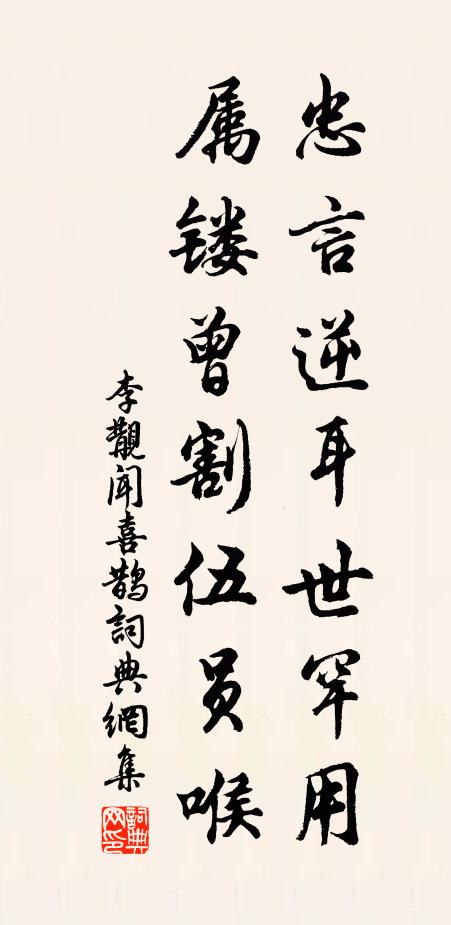 忠言逆耳世罕用
属镂曾割伍员喉
李覯闻喜鹊词典網集
詞典网印